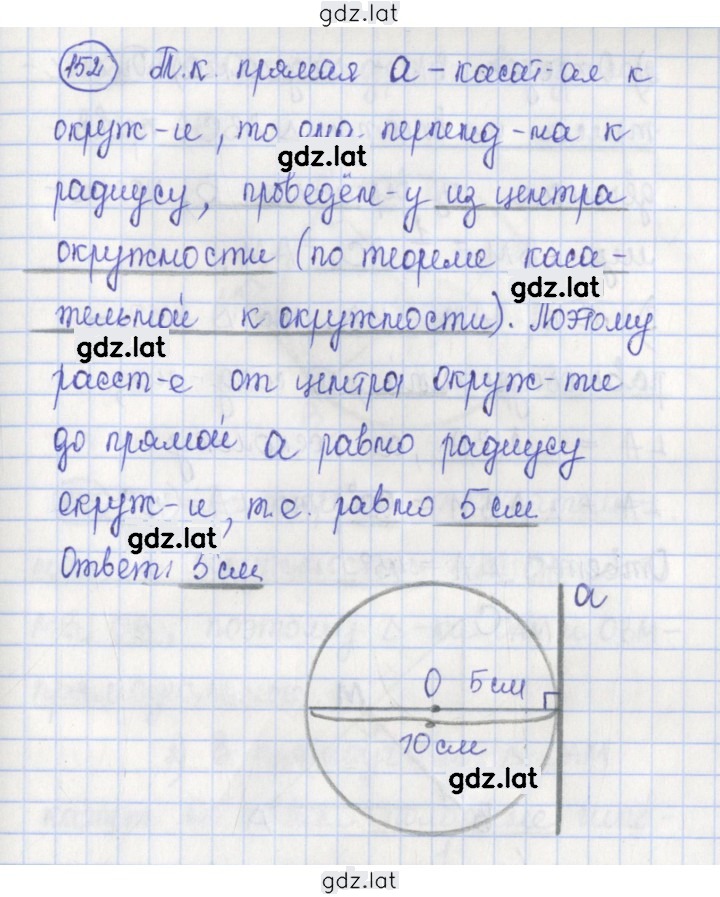 gdz.lat
152 Т.к. прямая a - касат-ая к
окруж-и, то она перпенд-на к
gdz.lat
радиусу, проведён-у из центра
окружности (по теореме каса-
gdz.lat
тельной к окружности). Поэтому
gdz.lat
расст-е от центра окруж-ти
до прямой a равно радиусу
окруж-и, т.е. равно 5 см
gdz.lat
Ответ: 5 см
a
O 5 см
10 см
gdz.lat
gdz.lat